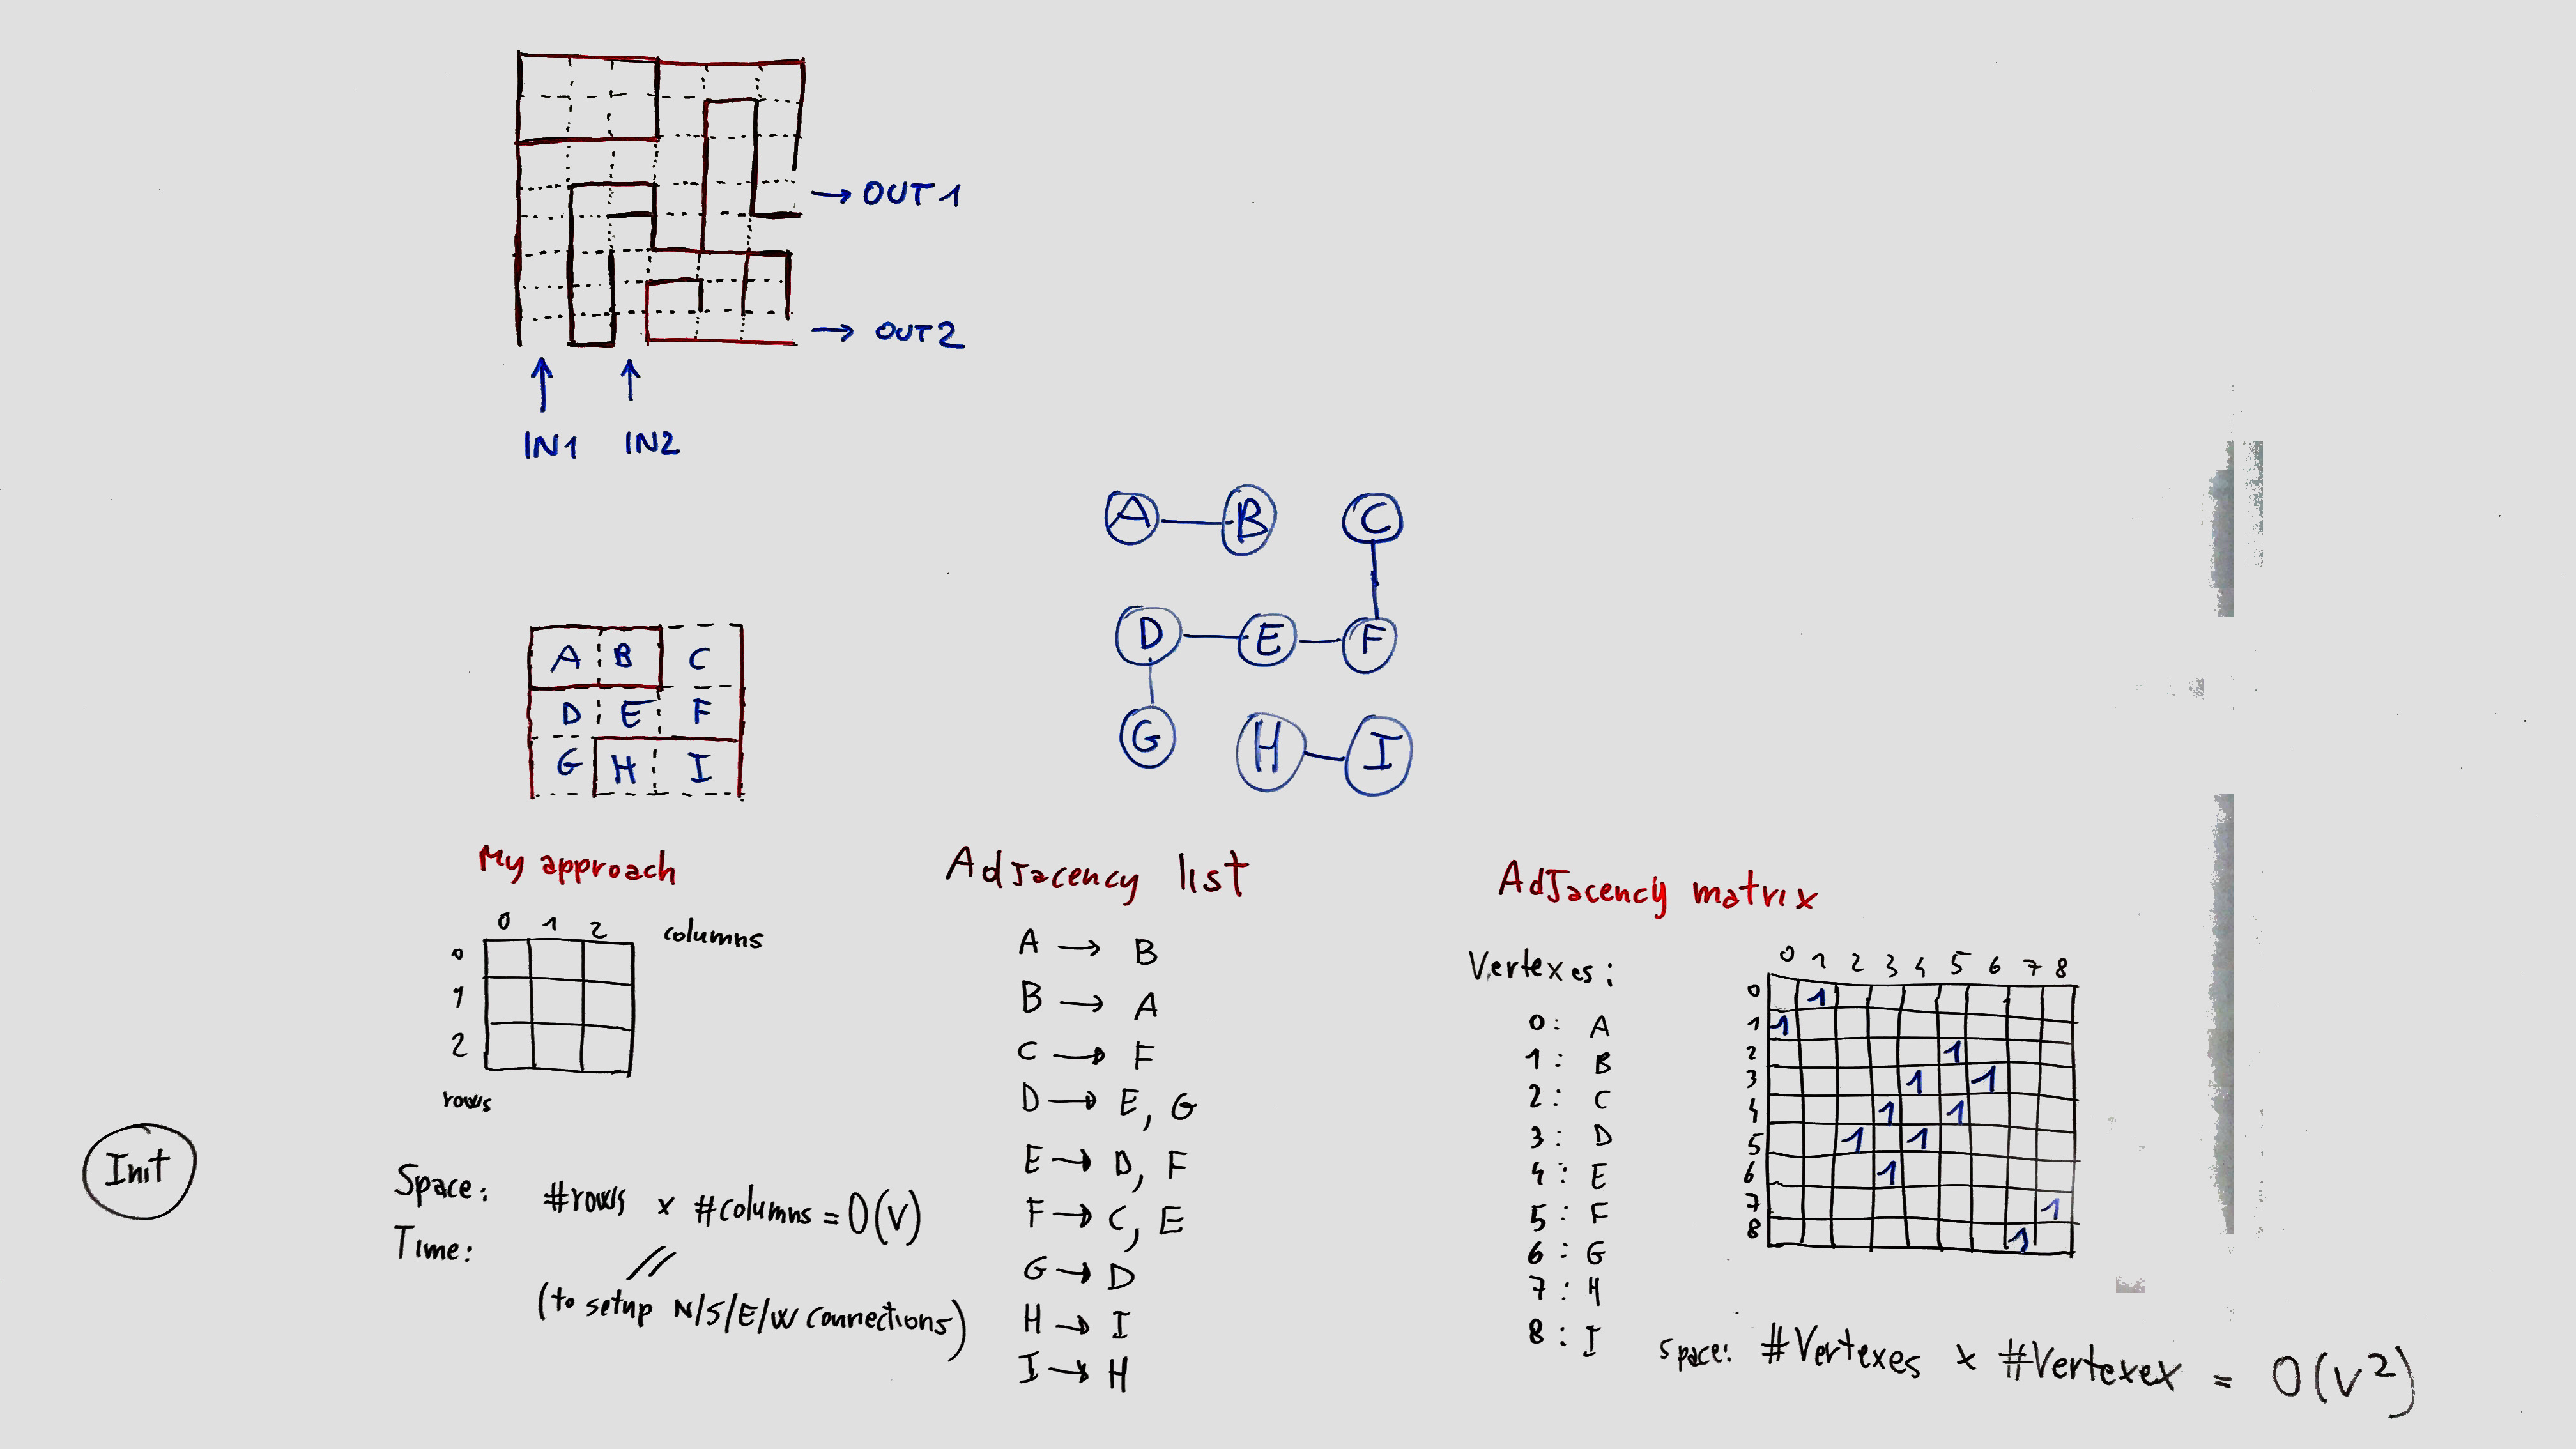 → OUT1
→ OUT2
IN1 IN2
A B C
D E F
G H I
A B C
D E F
G H I
My approach
0 1 2 columns
0
1
2
rows
Init
Space: #rows x #columns = O(V)
Time: //
(to setup N/S/E/W connections)
Adjacency list
A → B
B → A
C → F
D → E, G
E → D, F
F → C, E
G → D
H → I
I → H
Adjacency matrix
Vertexes:
0: A
1: B
2: C
3: D
4: E
5: F
6: G
7: H
8: I
0 1 2 3 4 5 6 7 8
0 1
1 1
2 1
3 1 1
4 1 1
5 1 1
6 1
7 1
8 1
space: #Vertexes x #Vertexex = O(V²)